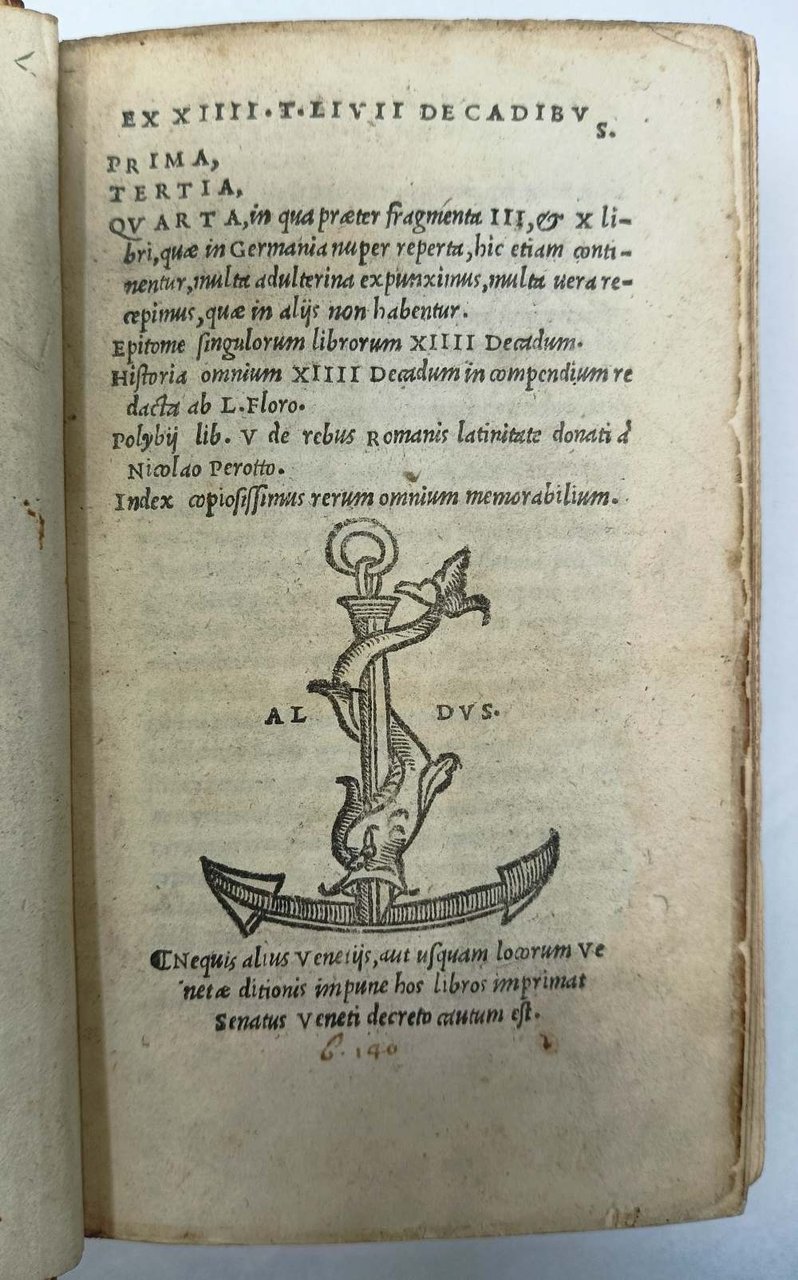 EX XIIII. T. LIVII DECADIBVS.
PRIMA,
TERTIA,
QVARTA, in qua præter fragmenta III, & X li-
bri, quæ in Germania nuper reperta, hic etiam conti-
nentur, multa adulterina expunximus, multa uera re-
cepimus, quæ in alijs non habentur.
Epitome singulorum librorum XIIII Decadum.
Historia omnium XIIII Decadum in compendium re
dacta ab L. Floro.
Polybij lib. V de rebus Romanis latinitate donati à
Nicolao Perotto.
Index copiosissimus rerum omnium memorabilium.
AL DVS.
¶Nequis alius Venetijs, aut usquam locorum Ve
netæ ditionis impune hos libros imprimat
Senatus Veneti decreto cautum est.